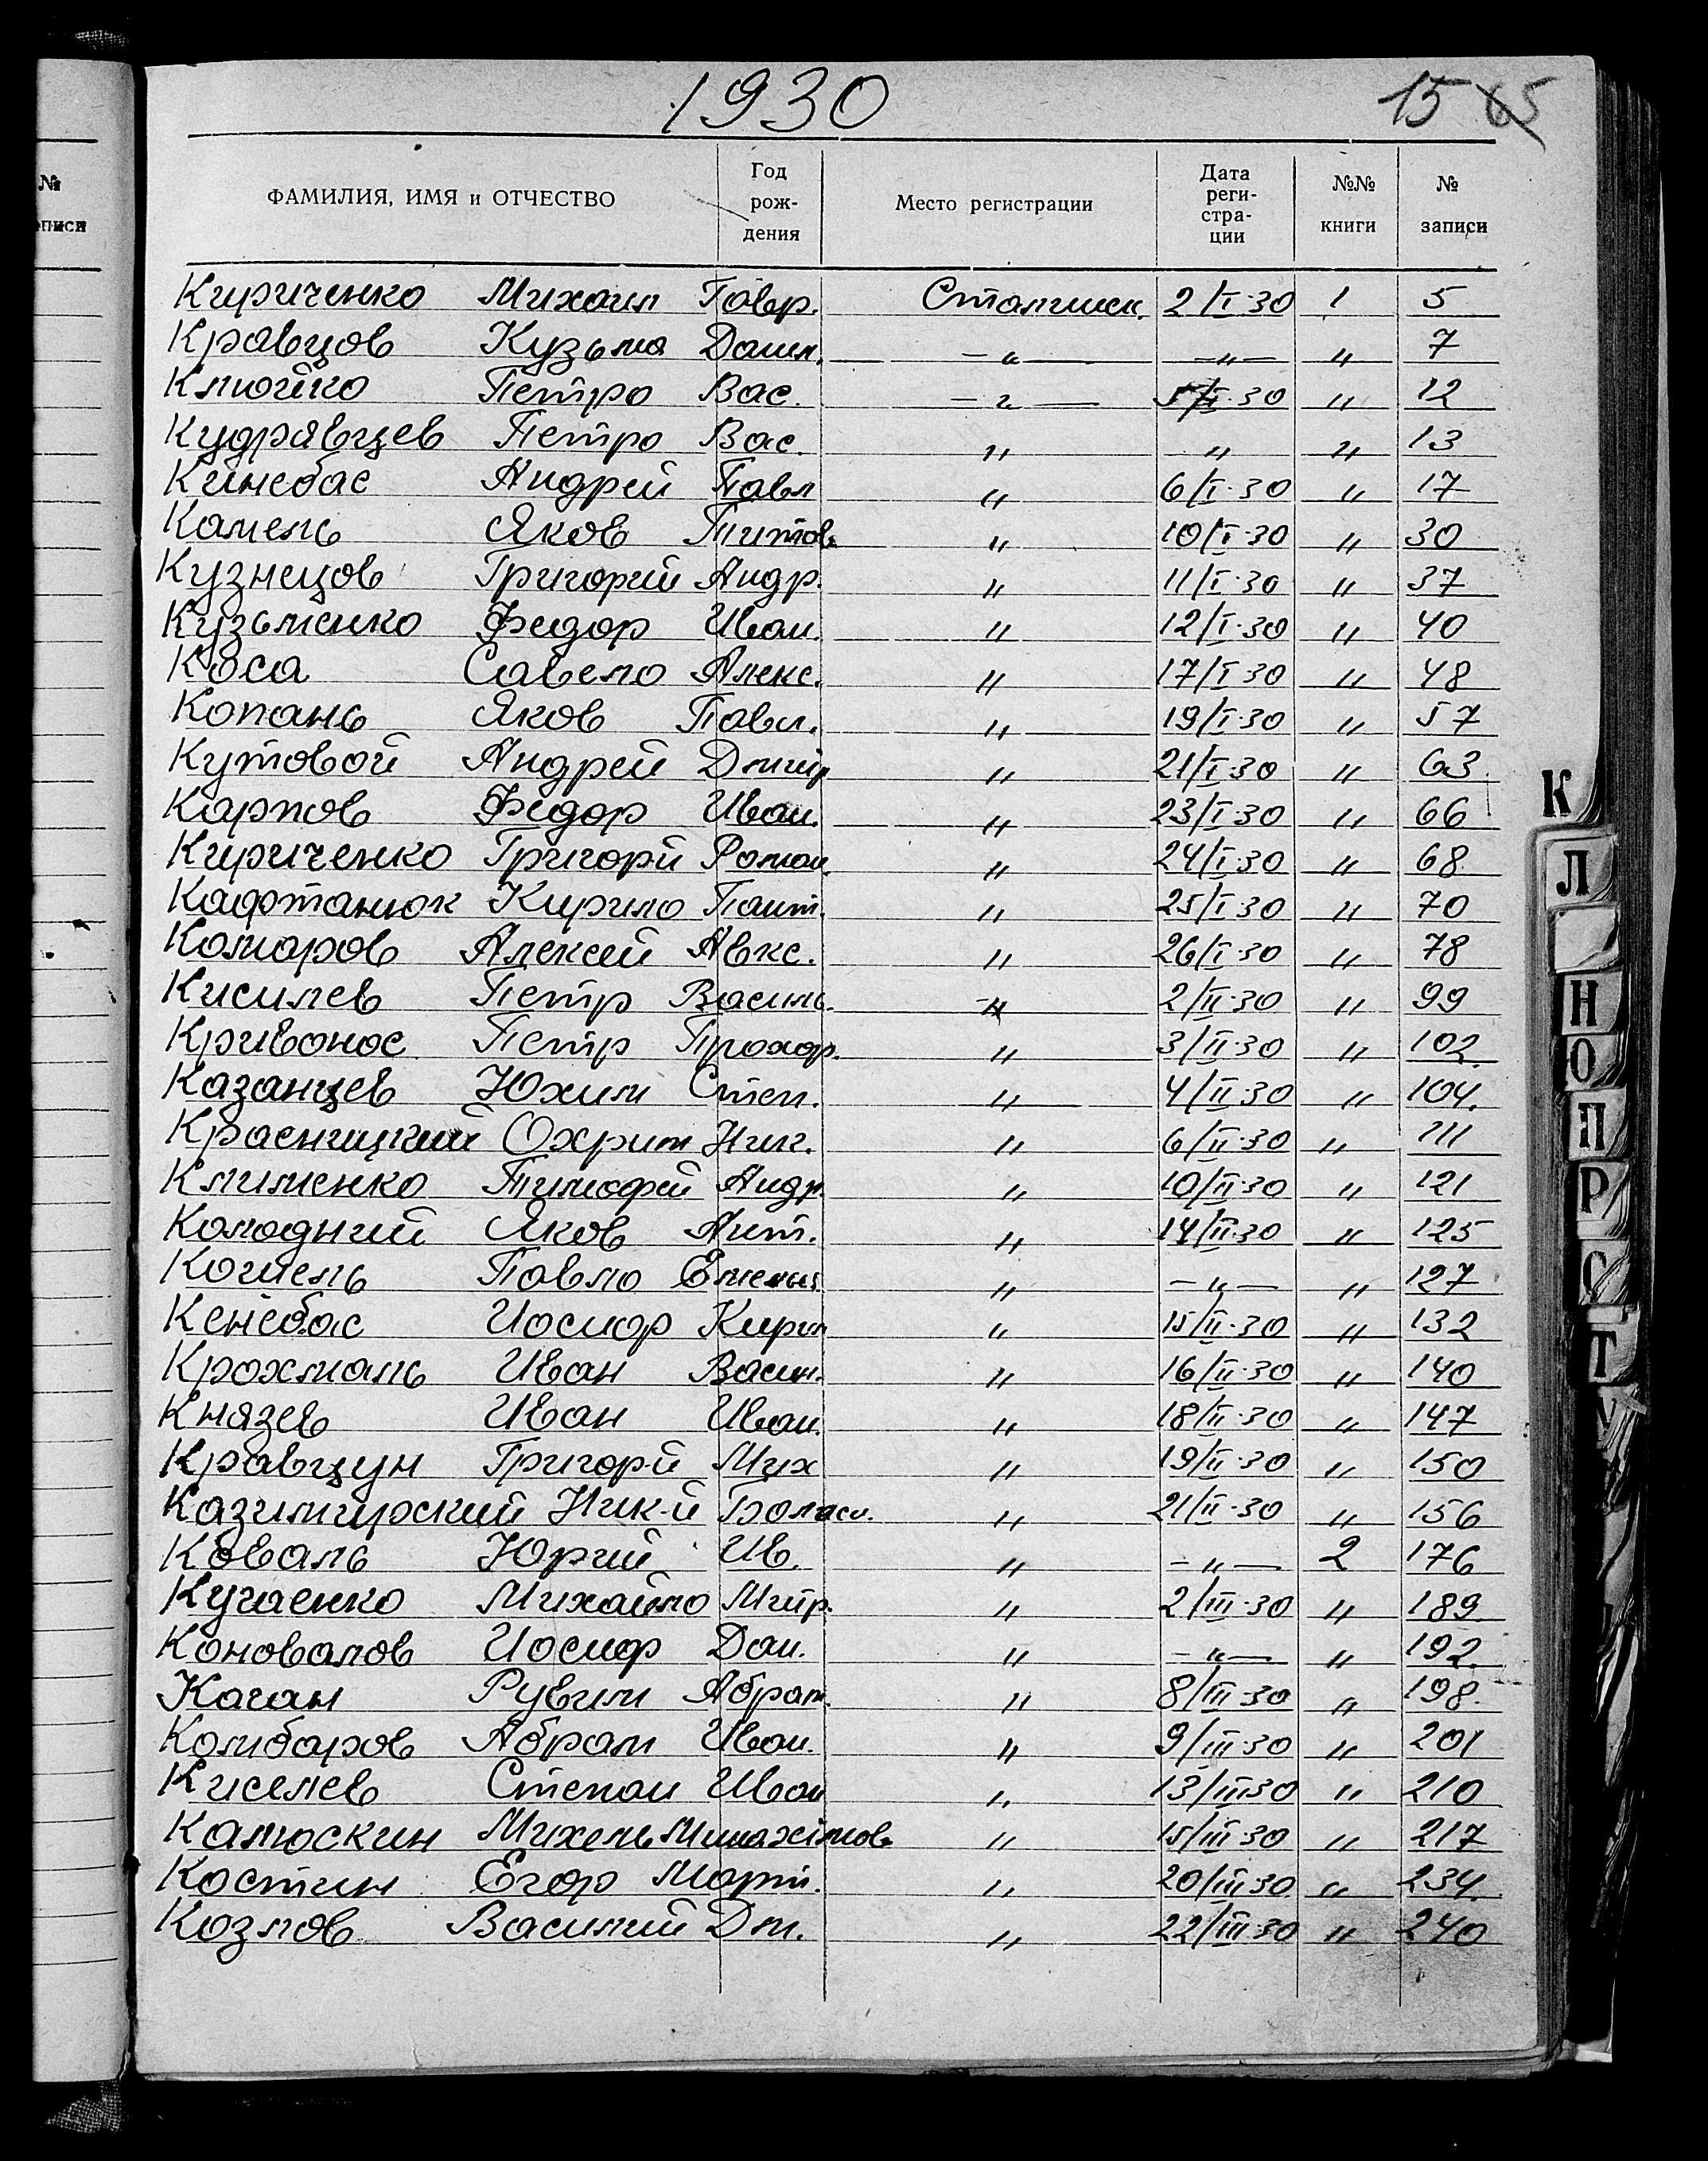 1930
15 65
№
записи
ФАМИЛИЯ, ИМЯ и ОТЧЕСТВО Год рож- дения Место регистрации Дата реги- стра- ции №№ книги № записи
Кириченко Михаил Гавр. Сталинск. 2/I-30 1 5
Кравцов Кузьма Данил. —„— —„— „ 7
Клюйко Петро Вас. —„— 5/I-30 „ 12
Кудрявцев Петро Вас. „ „ „ 13
Кинебас Андрей Павл „ 6/I-30 „ 17
Камель Яков Титов. „ 10/I-30 „ 30
Кузнецов Григорий Андр. „ 11/I-30 „ 37
Кузьменко Федор Иван. „ 12/I-30 „ 40
Коса Савело Алекс. „ 17/I-30 „ 48
Копань Яков Павл. „ 19/I-30 „ 57
Кутовой Андрей Дмитр „ 21/I-30 „ 63
Карпов Федор Иван. „ 23/I-30 „ 66
Кириченко Григорй Роман. „ 24/I-30 „ 68
Кафтанюк Кирило Пант. „ 25/I-30 „ 70
Комаров Алексей Авкс. „ 26/I-30 „ 78
Кисилев Петр Василь. „ 2/II-30 „ 99
Кривонос Петр Прохор. „ 3/II-30 „ 102
Казанцев Юхим Степ. „ 4/II-30 „ 104.
Красницкий Охрим Ник. „ 6/II-30 „ 111
Клименко Тимофей Андр. „ 10/II-30 „ 121
Колодний Яков Ант. „ 14/II-30 „ 125
Кошель Павло Емельян. „ —„— „ 127
Кенебас Иосиф Кирил „ 15/II-30 „ 132
Крохмаль Иван Васил. „ 16/II-30 „ 140
Князев Иван Иван. „ 18/II-30 „ 147
Кравцун Григор-й Мих „ 19/II-30 „ 150
Казимирский Ник-й Боласл. „ 21/II-30 „ 156
Коваль Юрий Ив. „ —„— 2 176
Кучаенко Михайло Митр. „ 2/III-30 „ 189
Коновалов Иосиф Дан. „ —„— „ 192.
Каган Рувим Абрам. „ 8/III-30 „ 198.
Камбаров Абрам Иван. „ 9/III-30 „ 201
Киселев Степан Иван „ 13/III-30 „ 210
Калюскин Михель „ 15/III-30 „ 217
Костин Егор Март. „ 20/III-30 „ 234.
Козлов Василий Дм. „ 22/III-30 „ 240
К
Л
Н
О
П
Р
С
Т
У